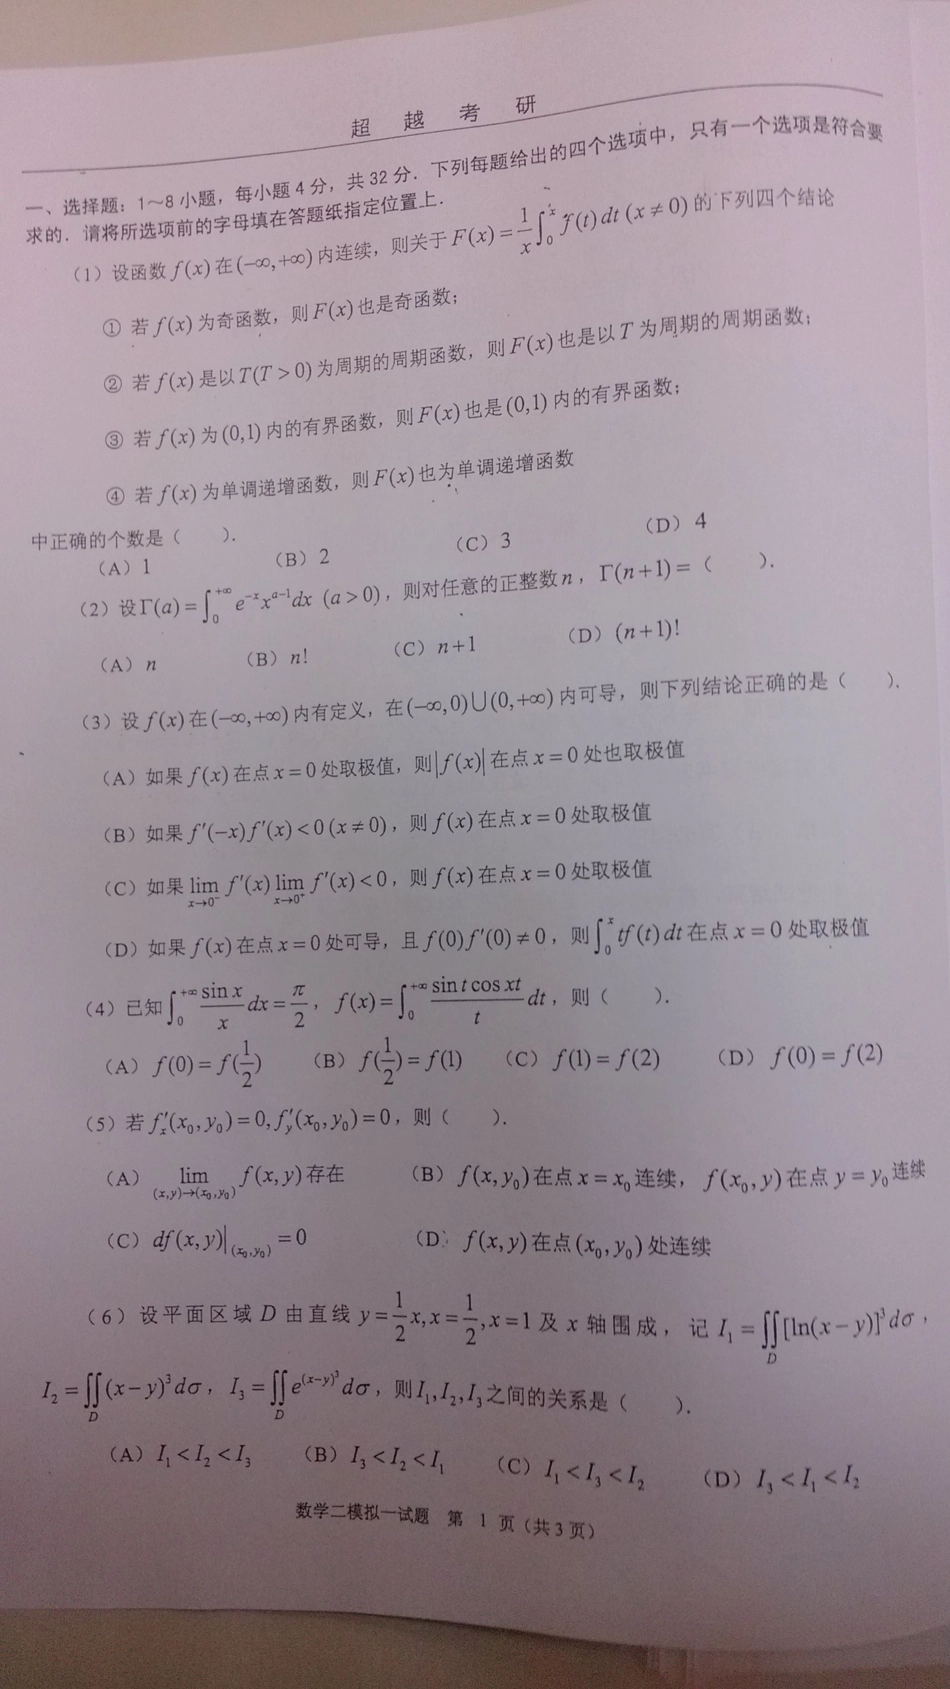 超 越 考 研
一、选择题：1～8 小题，每小题 4 分，共 32 分．下列每题给出的四个选项中，只有一个选项是符合要
求的．请将所选项前的字母填在答题纸指定位置上．
（1）设函数 f(x) 在(−∞,+∞) 内连续，则关于 F(x) = 1/x ∫₀ˣ f(t) dt (x ≠ 0) 的下列四个结论
① 若 f(x) 为奇函数，则 F(x) 也是奇函数；
② 若 f(x) 是以 T(T > 0) 为周期的周期函数，则 F(x) 也是以 T 为周期的周期函数；
③ 若 f(x) 为 (0,1) 内的有界函数，则 F(x) 也是 (0,1) 内的有界函数；
④ 若 f(x) 为单调递增函数，则 F(x) 也为单调递增函数
中正确的个数是（　　）．
（A）1 （B）2 （C）3 （D）4
（2）设 Γ(a) = ∫₀^{+∞} e^{−x} x^{a−1} dx (a > 0)，则对任意的正整数 n，Γ(n+1) =（　　）．
（A）n （B）n! （C）n+1 （D）(n+1)!
（3）设 f(x) 在 (−∞,+∞) 内有定义，在 (−∞,0)∪(0,+∞) 内可导，则下列结论正确的是（　　）．
（A）如果 f(x) 在点 x = 0 处取极值，则 |f(x)| 在点 x = 0 处也取极值
（B）如果 f′(−x)f′(x) < 0 (x ≠ 0)，则 f(x) 在点 x = 0 处取极值
（C）如果 lim_{x→0⁻} f′(x) lim_{x→0⁺} f′(x) < 0，则 f(x) 在点 x = 0 处取极值
（D）如果 f(x) 在点 x = 0 处可导，且 f(0)f′(0) ≠ 0，则 ∫₀ˣ tf(t) dt 在点 x = 0 处取极值
（4）已知 ∫₀^{+∞} sin x/x dx = π/2，f(x) = ∫₀^{+∞} sin t cos xt/t dt，则（　　）．
（A）f(0) = f(1/2) （B）f(1/2) = f(1) （C）f(1) = f(2) （D）f(0) = f(2)
（5）若 f′ₓ(x₀, y₀) = 0, f′_y(x₀, y₀) = 0，则（　　）．
（A） lim_{(x,y)→(x₀,y₀)} f(x, y) 存在 （B）f(x, y₀) 在点 x = x₀ 连续，f(x₀, y) 在点 y = y₀ 连续
（C）df(x, y)|_{(x₀,y₀)} = 0 （D）f(x, y) 在点 (x₀, y₀) 处连续
（6）设平面区域 D 由直线 y = 1/2 x, x = 1/2, x = 1 及 x 轴围成，记 I₁ = ∬_D [ln(x − y)]³ dσ，
I₂ = ∬_D (x − y)³ dσ，I₃ = ∬_D e^{(x−y)³} dσ，则 I₁, I₂, I₃ 之间的关系是（　　）．
（A）I₁ < I₂ < I₃ （B）I₃ < I₂ < I₁ （C）I₁ < I₃ < I₂ （D）I₃ < I₁ < I₂
数学二模拟一试题 第 1 页（共 3 页）